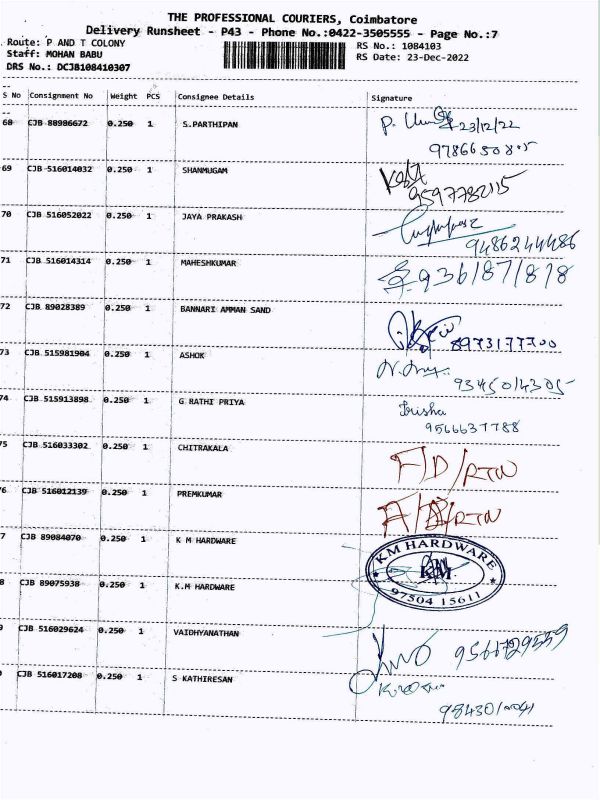 THE PROFESSIONAL COURIERS, Coimbatore
Delivery Runsheet - P43 - Phone No.:0422-3505555 - Page No.:7
Route: P AND T COLONY
RS No.: 1084103
Staff: MOHAN BABU
RS Date: 23-Dec-2022
DRS No.: DCJB108410307
S No Consignment No Weight PCS Consignee Details Signature
68 CJB 88986672 0.250 1 S.PARTHIPAN
23/12/22
69 CJB 516014032 0.250 1 SHANMUGAM
9597782115
70 CJB 516052022 0.250 1 JAYA PRAKASH
9486244486
71 CJB 516014314 0.250 1 MAHESHKUMAR
936187/818
72 CJB 89028389 0.250 1 BANNARI AMMAN SAND
8973177700
73 CJB 515981904 0.250 1 ASHOK
9345014305
74 CJB 515913898 0.250 1 G RATHI PRIYA
Irisha
9566637788
75 CJB 516033302 0.250 1 CHITRAKALA F/D/RTN
6 CJB 516012139 0.250 1 PREMKUMAR
7 CJB 89084070 0.250 1 K M HARDWARE
KM HARDWARE
KM
97504 15611
8 CJB 89075938 0.250 1 K.M HARDWARE
9 CJB 516029624 0.250 1 VAIDHYANATHAN
CJB 516017208 0.250 1 S KATHIRESAN